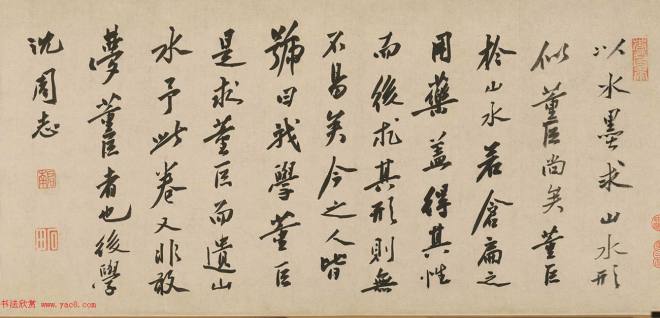 以水墨求山水形
似董巨尚矣董巨
於山水若倉扁之
用藥蓋得其性
而後求其形則無
不易矣今之人皆
號曰我學董巨
是求董巨而遺山
水予此卷又非敢
夢董巨者也後學
沈周志
书法欣赏 www.yac8.com